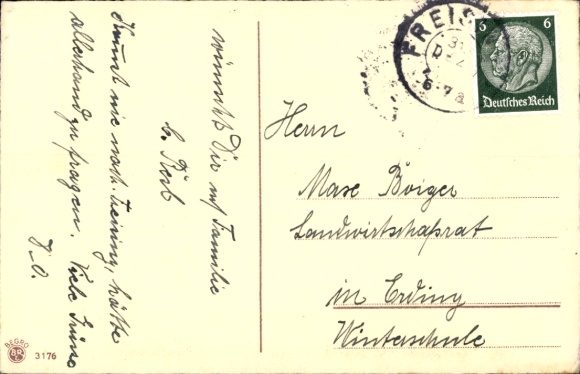 wünscht Dir mit Familie
b. Besb
Kommt nie nach Freising, hätte
allerhand zu fragen. Viele Grüße
J. O.
FREIS
6-7
6 6
Deutsches Reich
Herrn
Max Boiger
Landwirtschaftsrat
in Erding
Winterschule
BEGRO
3176